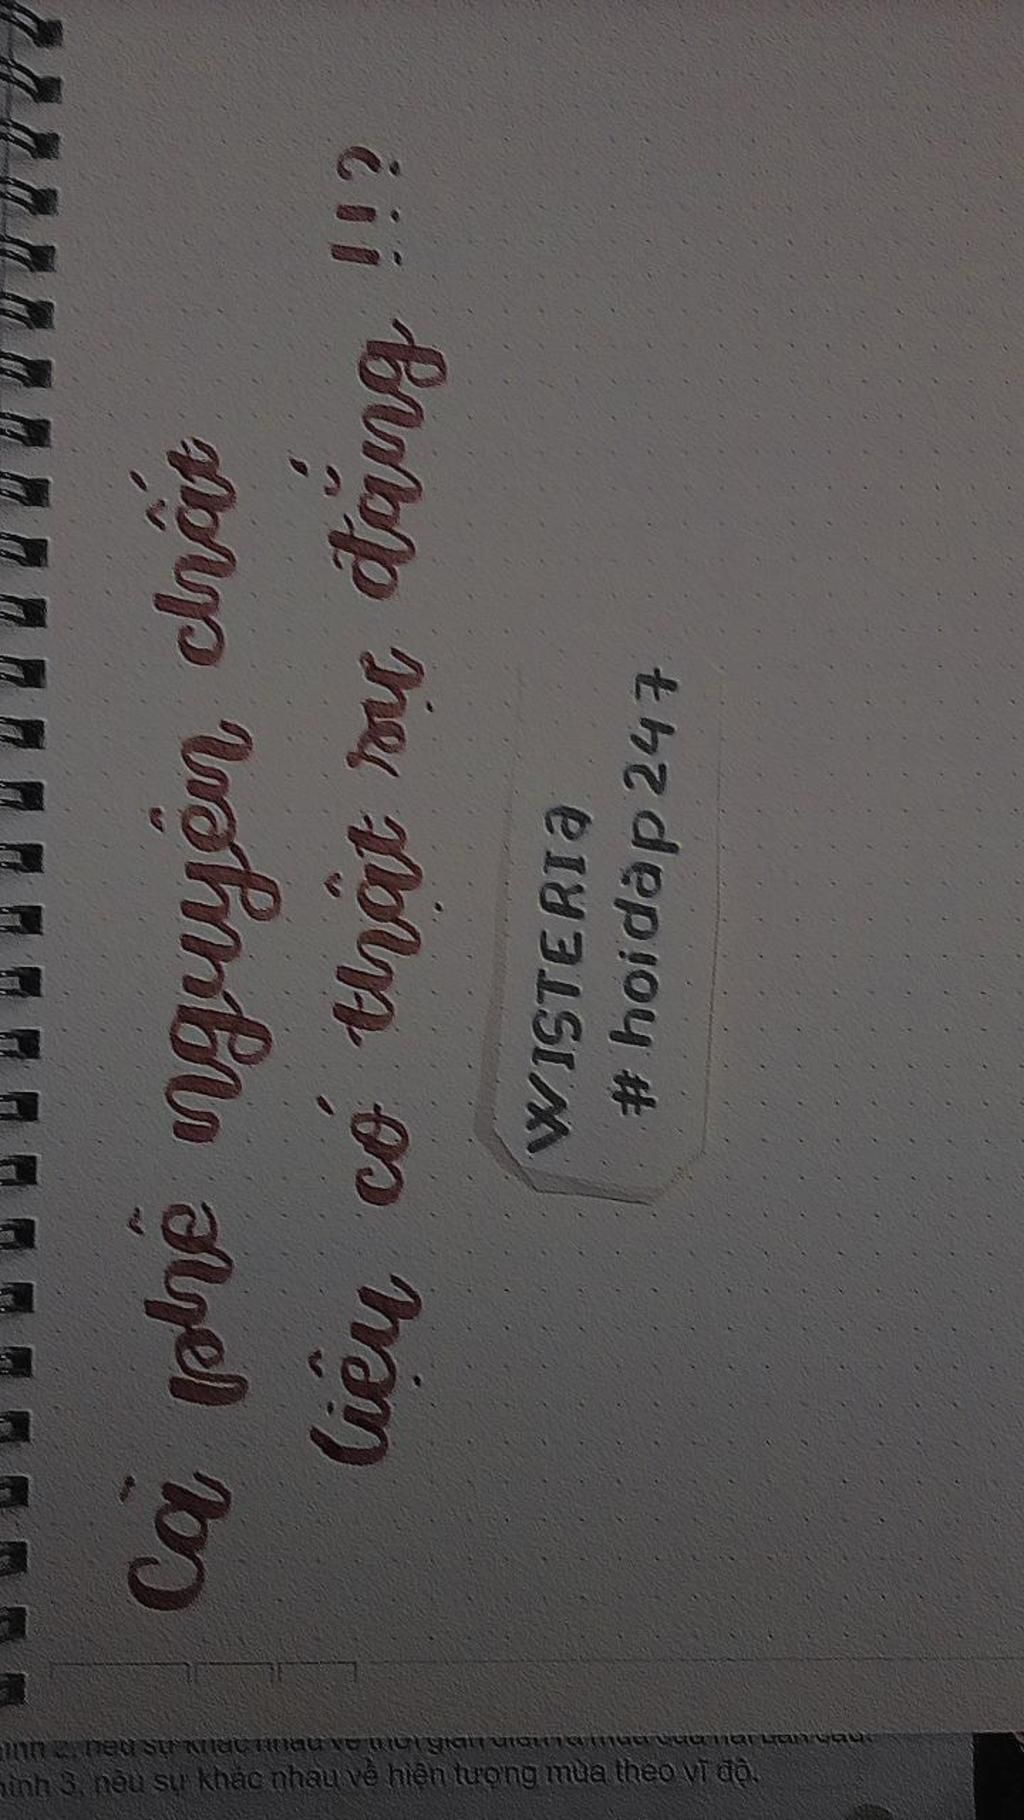 Cà phê nguyên chất
liệu có thật sự đắng !!?
WISTERIA
#hoidap247
hình 3, nêu sự khác nhau về hiện tượng mùa theo vĩ độ.